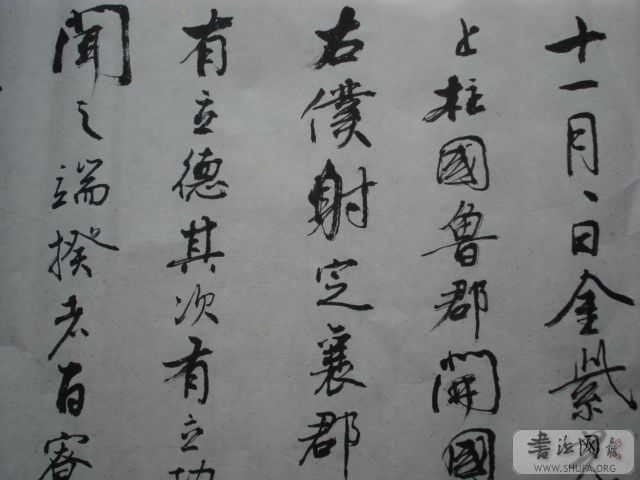 十一月、日金紫光
上柱國魯郡開國
右僕射定襄郡
有立德其次有立功
聞之端揆者百寮
書法网
WWW.SHUFA.ORG